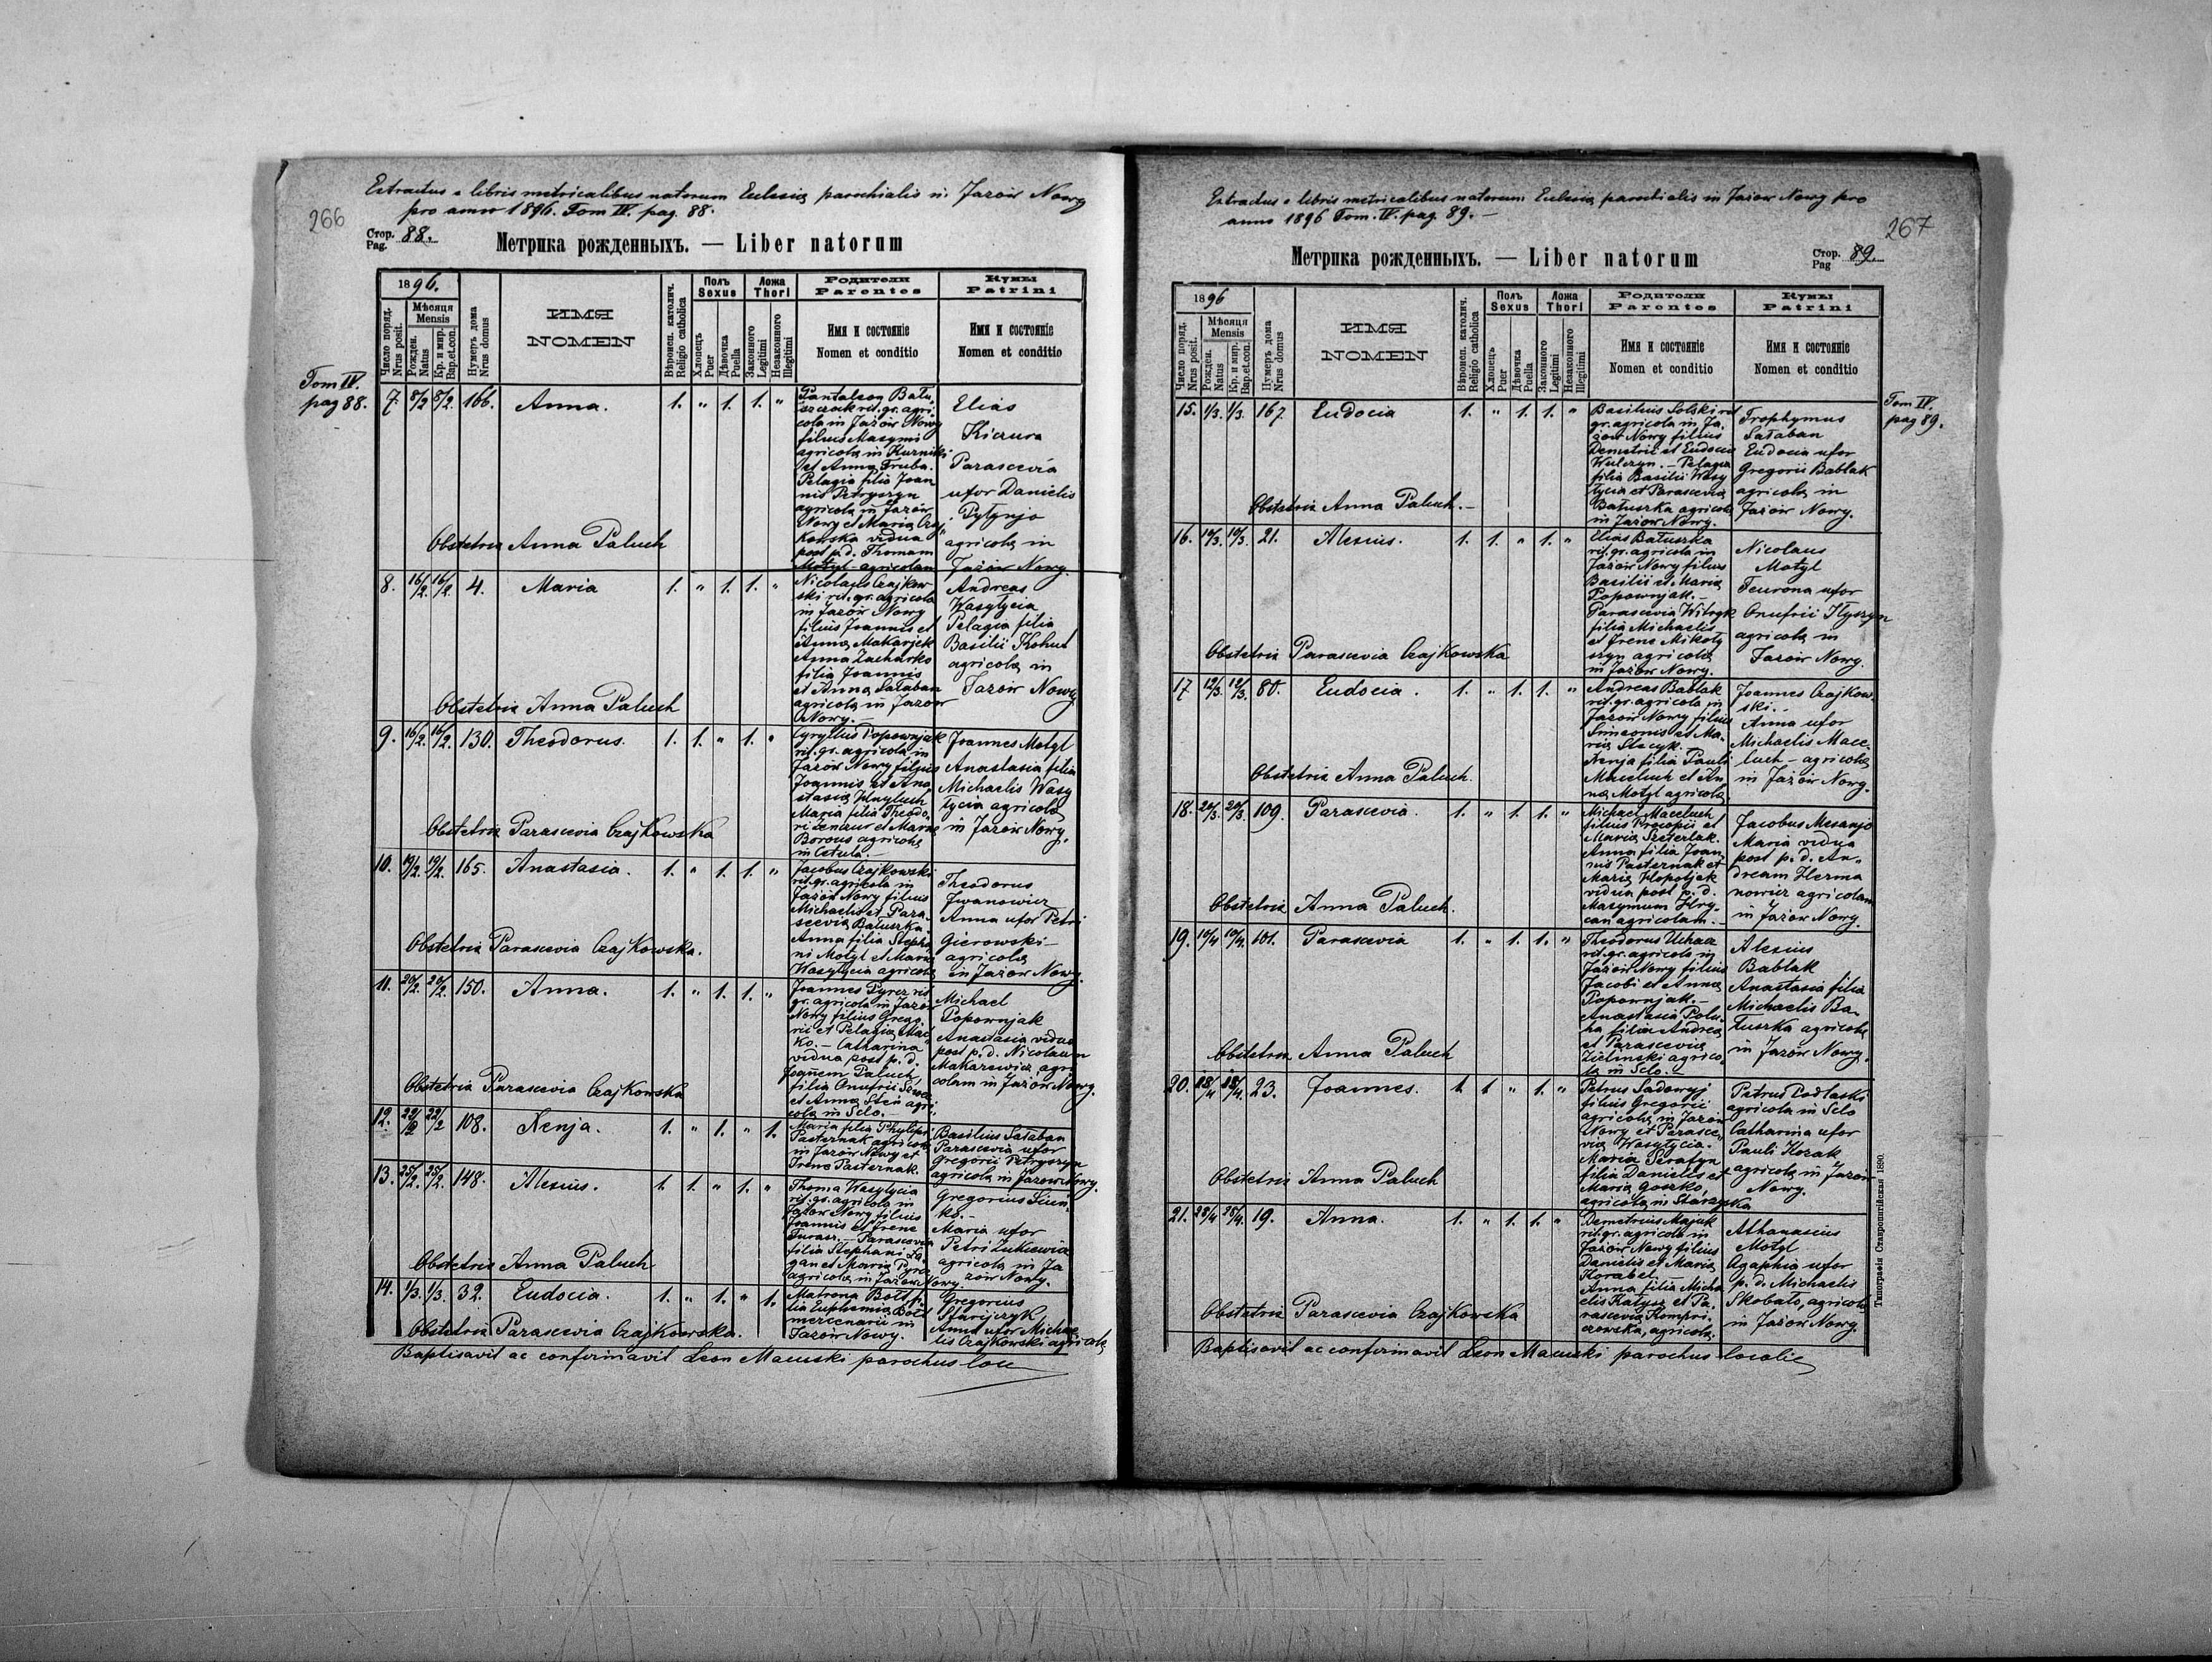 Extractus e libris metricalibus natorum Eclesiæ parochialis in Jazów Nowy
pro anno 1896. Tom IV. pag. 88.
266
Стор. Pag. 88.
Метрика рожденныхъ. — Liber natorum
1896.
Число поряд. Nrus posit.
Мѣсяця Mensis
Рожден. Natus
Кр. и мир. Bap. et con.
Нумеръ дома Nrus domus
ИМЯ NOMEN
Вѣроисп. католич. Religio catholica
Полъ Sexus
Хлопецъ Puer
Дѣвочка Puella
Ложа Thori
Законного Legitimi
Незаконного Illegitimi
Родители Parentes
Имя и состоянiе Nomen et conditio
Кумы Patrini
Имя и состоянiе Nomen et conditio
Tom IV.
pag 88.
7. 8/2 8/2. 166. Anna. 1. " 1. 1. "
Pantaleog Batu-
szczak rit. gr. agri-
cola in Jazów Nowy
filius Maxymi
agricolæ in Kurniki
et Anna Truba.
Pelagia filia Joan
nis Petryszyn
agricolæ in Jazów
Nowy et Maria Czaj-
kowska vidua
post p. d. Thomam
Motyl agricolam
Elias
Kiczura
Parascevia
uxor Danielis
Pytynjo
agricolæ in
Jazów Nowy.
Obstetrix Anna Paluch
8. 16/2. 16/2. 4. Maria 1. " 1. 1. "
Nicolaus Czajkow
ski rit. gr. agricola
in Jazów Nowy
filius Joannis et
Anna Makarjek
Anna Zacharko
filia Joannis
et Anna Sałaban
agricolæ in Jazów
Nowy.—
Andreas
Wasyłycia
Pelagia filia
Basilii Kohut
agricolæ in
Jazów Nowy
Obstetrix Anna Paluch
9. 16/2. 16/2. 130. Theodorus. 1. 1. " 1. "
Cyryllus Popownjak
rit. gr. agricola in
Jazów Nowy filius
Joannis et Ana-
stasia Hnyluch
Maria filia Theodo-
ri Zenczur et Maria
Borous agricolæ
in Cetula.—
Joannes Motyl
Anastasia filia
Michaelis Wasy
łycia agricolæ
in Jazów Nowy.
Obstetrix Parascevia Czajkowska
10. 19/2. 19/2. 165. Anastasia. 1. " 1. 1. "
Jacobus Czajkowski
rit. gr. agricola in
Jazów Nowy filius
Michaelis et Para-
scevia Batuszka.
Anna filia Stepha-
ni Motyl et Maria
Wasyłycia agricolæ
Theodorus
Iwanowicz
Anna uxor Petri
Gierowski—
agricolæ
in Jazów Nowy.
Obstetrix Parascevia Czajkowska.
11. 20/2. 20/2. 150. Anna. 1. " 1. 1. "
Joannes Pyrcz rit
gr. agricola in Jazów
Nowy filius Grego
rii et Pelagia Mać-
ko.— Catharina
vidua post p. d.
Joannem Paluch,
filia Onufrii
et Anna Steń agri
colæ in Selo.
Michael
Popownjak
Anastasia vidua
post p. d. Nicolaum
Makarewicz, agri
colam in Jazów Nowy.
Obstetrix Parascevia Czajkowska
12. 22/2 22/2 108. Xenja. 1. " 1. " 1.
Maria filia Phylippi
Pasternak agricolæ
in Jazów Nowy et
Irene Pasternak.
Basilius Sałaban
Parascevia uxor
Gregorii Petryszyn
agricolæ in Jazów Nowy.
13. 25/2. 25/2. 148. Alexius. 1. 1. " 1. "
Thoma Wasyłycia
rit. gr. agricola in
Jazów Nowy filius
Joannis et Irene
Jurasz.— Parascevia
filia Stephani Ła
gan et Maria Pyrcz
agricolæ in Jazów Nowy.
Gregorius
ko.—
Maria uxor
Petri Łukiewicz
agricolæ in Ja
zów Nowy.
Obstetrix Anna Paluch
14. 1/3. 1/3. 32. Eudocia. 1. " 1. " 1.
Matrona Bott fi-
lia Euphemia Bott
mercenarii in
Jazów Nowy.
Gregorius
Pfarijczyk
Anna uxor Michae-
lis Czajkowski agricolæ
Obstetrix Parascevia Czajkowska.
Baptisavit ac confirmavit Leon Macuski parochus loci
Extractus e libris metricalibus natorum Eclesiæ parochialis in Jazów Nowy pro
anno 1896 Tom. IV. pag. 89.—
267
Метрика рожденныхъ. — Liber natorum
Стор. Pag 89.
1896
Число поряд. Nrus posit.
Мѣсяця Mensis
Рожден. Natus
Кр. и мир. Bap. et con.
Нумеръ дома Nrus domus
ИМЯ NOMEN
Вѣроисп. католич. Religio catholica
Полъ Sexus
Хлопецъ Puer
Дѣвочка Puella
Ложа Thori
Законного Legitimi
Незаконного Illegitimi
Родители Parentes
Имя и состоянiе Nomen et conditio
Кумы Patrini
Имя и состоянiе Nomen et conditio
Tom IV.
pag 89.
15. 1/3. 1/3. 167. Eudocia 1. " 1. 1. "
Basilius Solski rit
gr. agricola in Ja-
zów Nowy filius
Demetrii et Eudocia
Wulczyn.— Pelagia
filia Basilii Wasy
łycia et Parascevia
Batuszka agricolæ
in Jazów Nowy.
Trophymus
Sałaban
Eudocia uxor
Gregorii Bablak
agricolæ in
Jazów Nowy.
Obstetrix Anna Paluch.—
16. 10/3. 10/3. 21. Alexius. 1. 1. " 1. "
Elias Batuszka
rit. gr. agricola in
Jazów Nowy filius
Basilii et Maria
Popownjak.—
Parascevia Witryk
filia Michaelis
et Irene Mikoły
szyn agricolæ
in Jazów Nowy.
Nicolaus
Motyl
Feurona uxor
Onufrii Ilyszyn
agricolæ in
Jazów Nowy.
Obstetrix Parascevia Czajkowska
17 12/3. 12/3. 80. Eudocia. 1. " 1. 1. "
Andreas Bablak
rit. gr. agricola in
Jazów Nowy filius
Simeonis et Ma-
ria Stecyk.—
Xenja filia Pauli
Maceluch et An-
na Motyl agricolæ
Joannes Czajkow-
ski.—
Anna uxor
Michaelis Mace-
luch — agricolæ
in Jazów Nowy.
Obstetrix Anna Paluch.
18. 20/3. 20/3. 109. Parascevia. 1. " 1. 1. "
Michael Maceluch
filius Procopii et
Maria Szeterlak.
Anna filia Joan-
nis Pasternak et
Maria Hopotjak
vidua post p. d.
Maxymum Hry-
can agricolam.—
Jacobus Mesanjo
Maria vidua
post p. d. An-
dream Herma
nowicz agricolam
in Jazów Nowy.
Obstetrix Anna Paluch.
19. 10/4 10/4. 101. Parascevia 1. " 1. 1. "
Theodorus Uchacz
rit. gr. agricola in
Jazów Nowy filius
Jacobi et Anna
Popownjak.—
Anastasia Polu-
ha filia Andrea
et Parascevia
Zielinski agrico-
læ in Selo.—
Alexius
Bablak
Anastasia filia
Michaelis Ba-
tuszka agricolæ
in Jazów Nowy.
Obstetrix Anna Paluch
20. 18/4 18/4. 23. Joannes. 1. 1 " 1. "
Petrus Sadowyj
filius Gregorii
agricolæ in Jazów
Nowy et Parasce-
via Wasyłycia.
Maria Serafyn
filia Danielis et
Maria Goszko,
agricolæ in Starzyska
Petrus Podlaski
agricola in Selo
Catharina uxor
Pauli Kozak
agricolæ in Jazów
Nowy.
Obstetrix Anna Paluch
21. 28/4 28/4. 19. Anna. 1. " 1. 1. "
Demetrius Majuk
rit. gr. agricola in
Jazów Nowy filius
Danielis et Maria
Korabel.—
Anna filia Micha
elis Katysz et Pa-
rascevia
czowska, agricolæ.
Athanasius
Motyl
Agaphia uxor
p. d. Michaelis
Skobało, agricolæ
in Jazów Nowy.
Obstetrix Parascevia Czajkowska
Baptisavit ac confirmavit Leon Macuski parochus localis
Типографiя Ставропигiйская 1890.